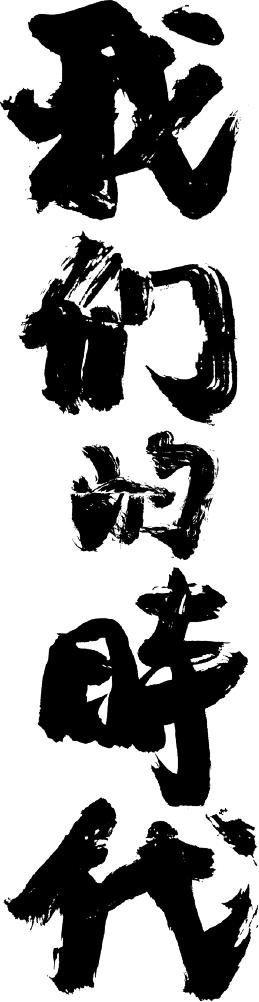 我们的時代